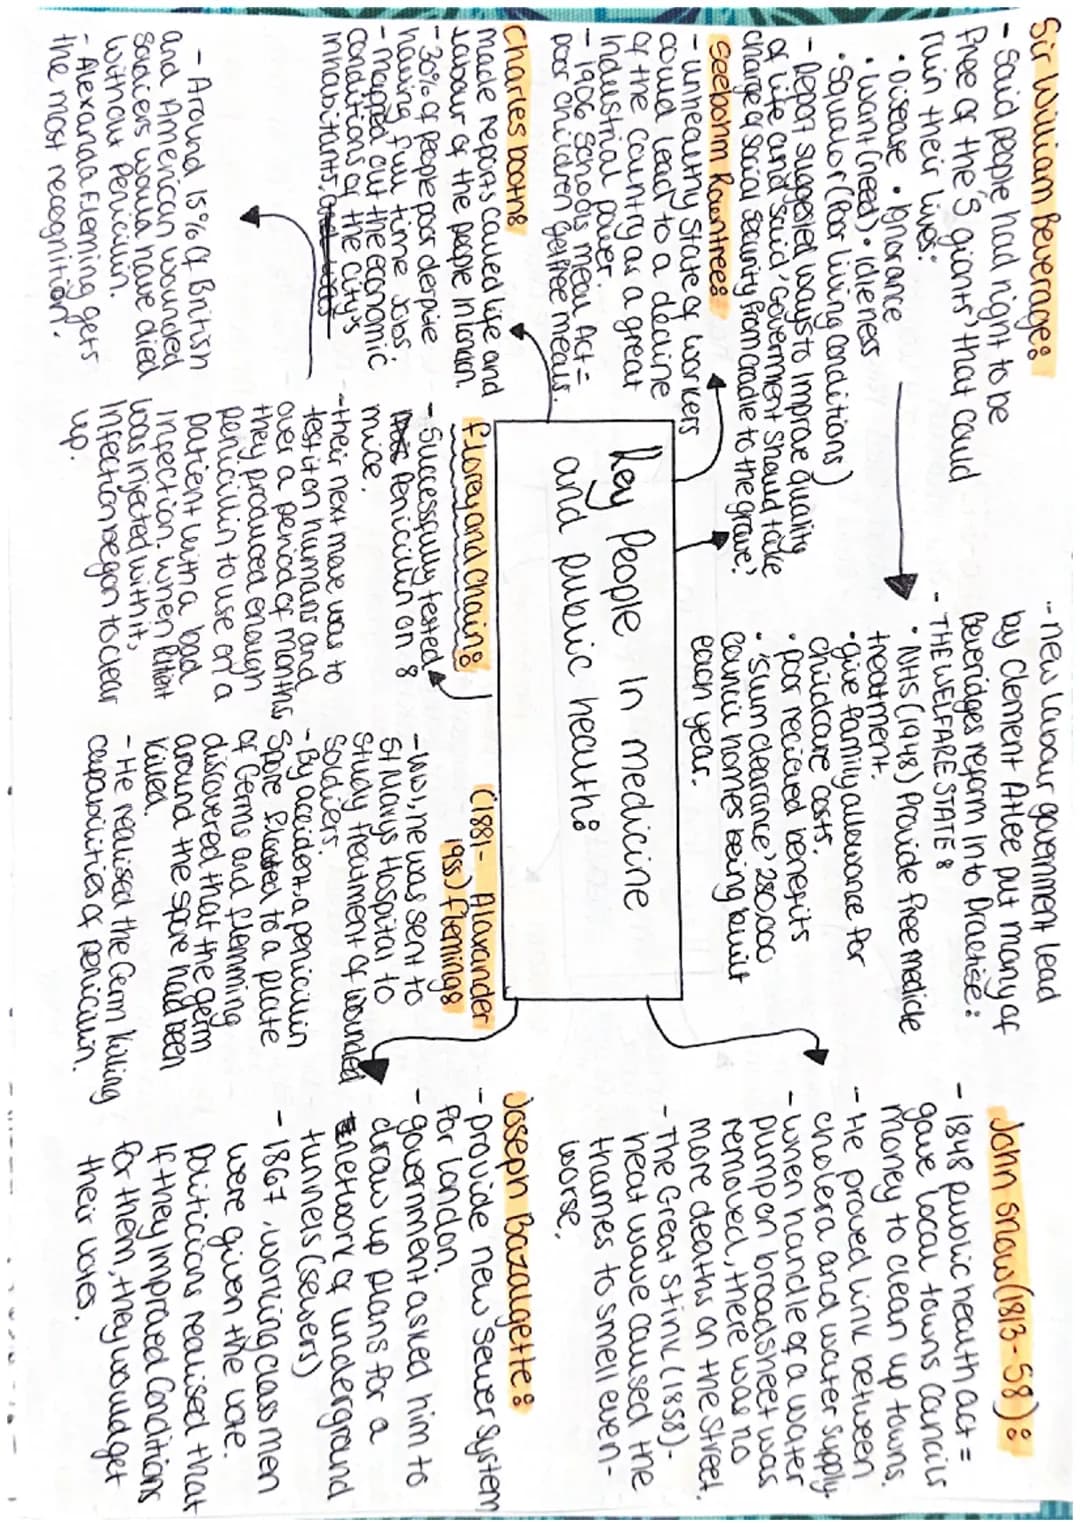 Sir William Beverage:
- Said people had right to be
free of the '5 giants' that could
ruin their lives:
• Disease • Ignorance
• Want (need) • idleness
• Squalor (Poor living Conditions)
- Report suggested ways to improve quality
of life and said, 'Government should take
charge of social security from cradle to the grave'.
- new labour government lead
by Clement Attlee put many of
Beveridges reform into Practise:
- THE WELFARE STATE:
• NHS (1948) Provide free medicle
treatment.
• give family allowance for
childcare costs.
• poor recieved benefits
• 'Slum clearance', 280,000
council homes being built
each year.
John Snow (1813-58):
- 1848 public health act =
gave local towns councils
money to clean up towns.
- He proved link between
cholera and water supply.
- When handle of a water
pump on broadsheet was
removed, there was no
more deaths on the street.
- The Great Stink (1858) -
heat wave caused the
thames to smell even-
worse.
Seebohm Rowntree:
- unhealthy state of workers
could lead to a decline
of the country as a great
Industrial power.
- 1906 Schools meal Act =
poor children get free meals
Key People In medicine
and public health:
Charles booth:
made reports called life and
labour of the people in london.
- 30% of people poor despite
having full time jobs.
- mapped out the economic
conditions of the city's
inhabitants,
- Around 15% of British
and American wounded
soldiers would have died
without Penicillin.
- Alexanda Fleming gets
the most recognition.
florey and Chain:
- Successfully tested
Penicillin on 8
mice.
- their next move was to
test it on humans and
over a period of months
they produced enough
penicillin to use on a
patient with a bad
Infection. When Patient
was injected with it,
Infection began to clear
up.
(1881- Alaxander
1955) fleming:
- WW1, he was sent to
St Marys Hospital to
Study treatment of wounded
Soldiers.
- By accident, a penicillin
Spore floated to a plate
of Germs and flemming
discovered that the germ
around the spore had been
killed.
- He realised the Germ Killing
capabilities of penicillin.
Joseph Bazalgette:
- provide new sewer system
for london.
- government asked him to
draw up plans for a
network of underground
tunnels (sewers)
- 1867, working class men
were given the vote.
Politicians realised that
If they improved Conditions
for them, they would get
their votes.